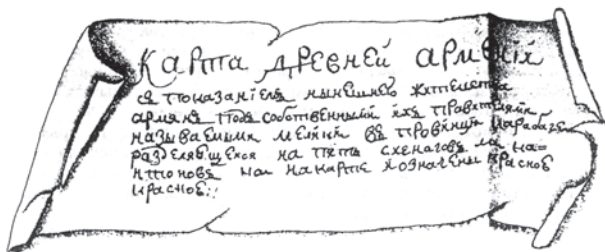 Карта древней армѣнiи
съ показанiемъ нынешнего жителства
армянъ подъ собственными ихъ правителями
называемыми мелики въ провинцiи карабаге
разделяющеися на пять схенаговъ ли кан-
тоновъ на карте означены краскою
красною: